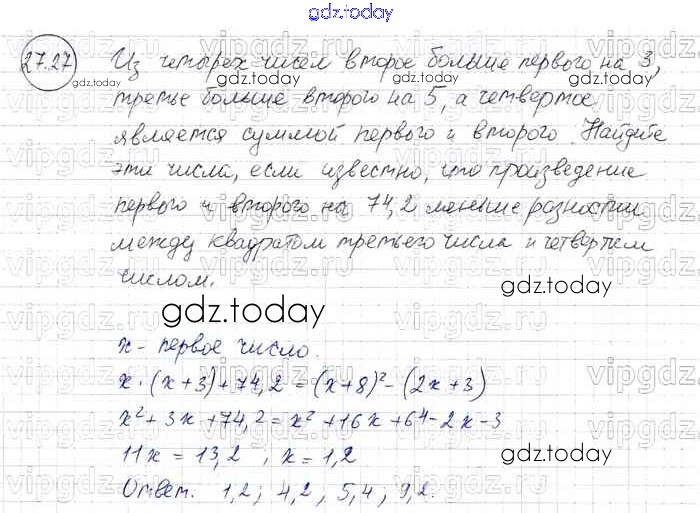 gdz.today
27.27 Из четырех чисел второе больше первого на 3,
третье больше второго на 5, а четвертое
является суммой первого и второго. Найдите
эти числа, если известно, что произведение
первого и второго на 74,2 меньше разности
между квадратом третьего числа и четвертым
числом.
gdz.today
gdz.today
x - первое число.
x·(x+3)+74,2=(x+8)²-(2x+3)
x²+3x+74,2=x²+16x+64-2x-3
11x=13,2; x=1,2
Ответ. 1,2; 4,2; 5,4; 9,2.